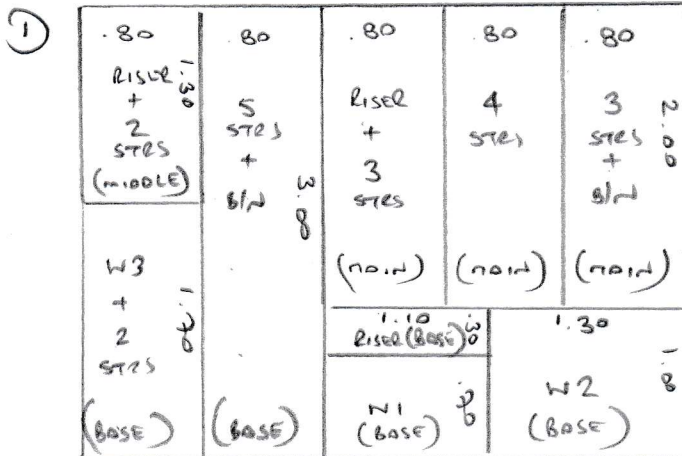 ①
.80
RISER
+
2
STRS
(MIDDLE)
1.30
W3
+
2
STRS
(BASE)
.80
5
STRS
+
B/N
3.8
(BASE)
.80
RISER
+
3
STRS
(MAIN)
.80
4
STRS
(MAIN)
.80
3
STRS
+
B/N
2.00
(MAIN)
1.10
RISER (BASE)
.30
W1
(BASE)
1.30
W2
(BASE)
1.8